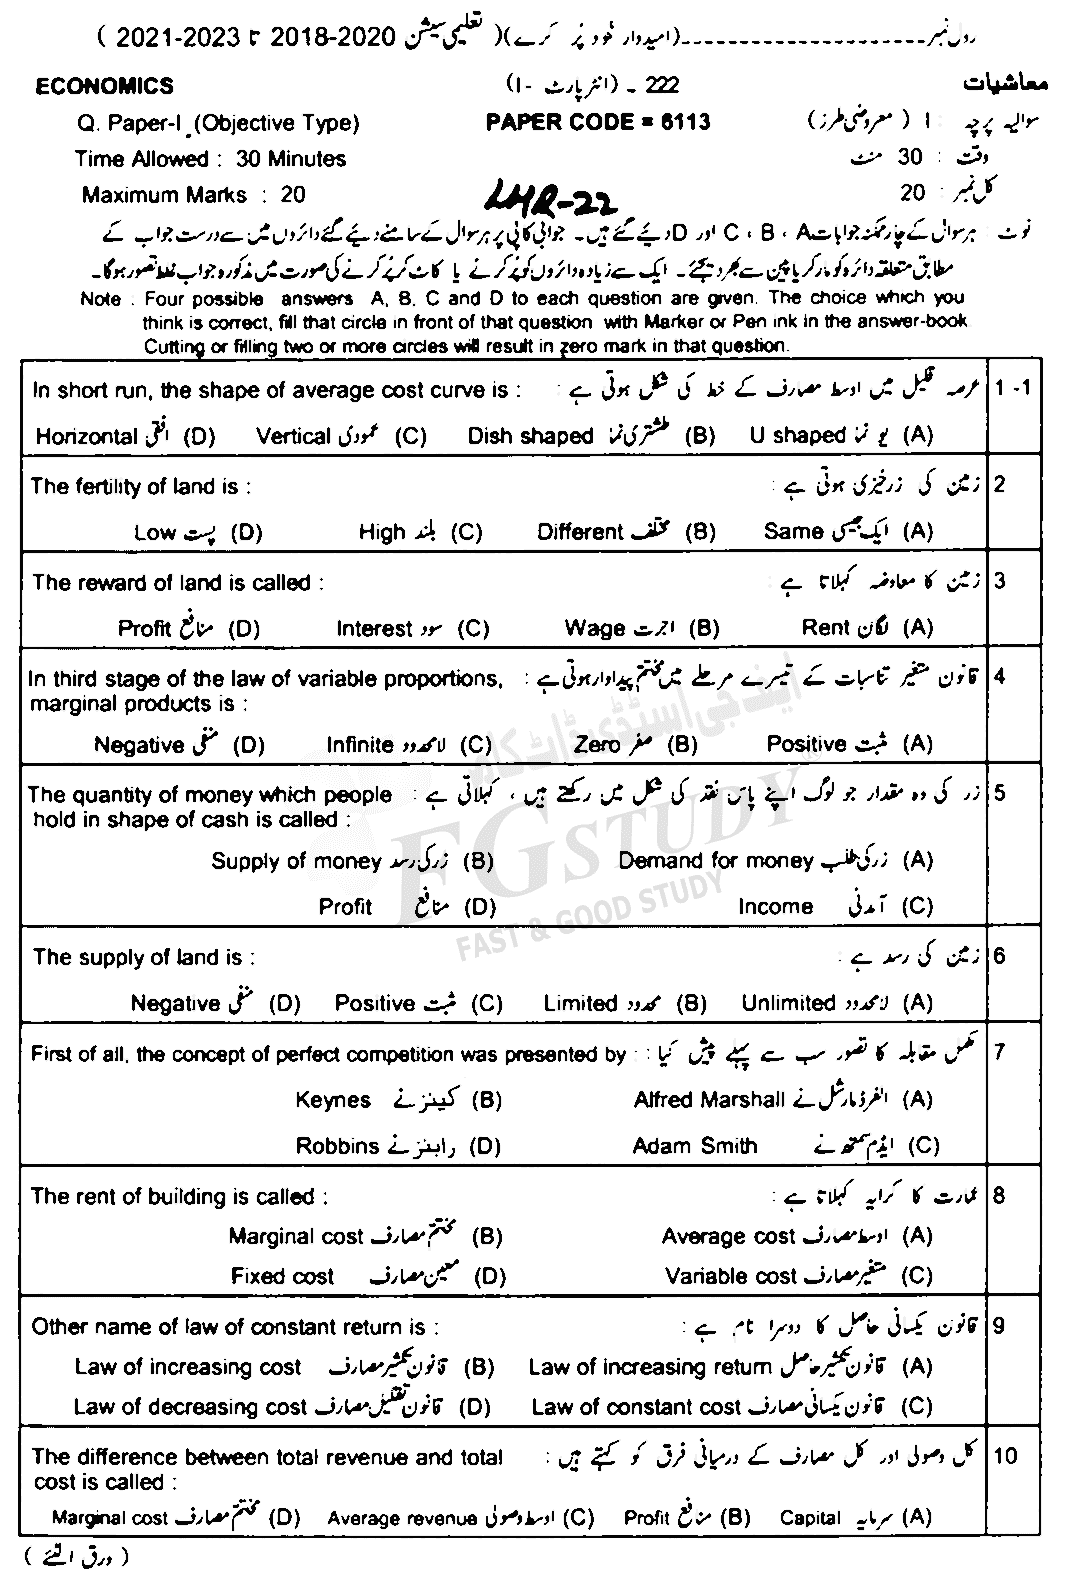 رول نمبر ـــــــــــــــــــ (امیدوار خود پُر کرے) ( تعلیمی سیشن 2020-2018 تا 2023-2021 )
ECONOMICS 222 ـ (انٹر پارٹ - I) معاشیات
Q. Paper-I (Objective Type) PAPER CODE = 6113 سوالیہ پرچہ : I (معروضی طرز)
Time Allowed : 30 Minutes وقت : 30 منٹ
Maximum Marks : 20 LHR-22 کل نمبر : 20
نوٹ : ہر سوال کے چار ممکنہ جوابات A ، B ، C اور D دیئے گئے ہیں۔ جوابی کاپی پر ہر سوال کے سامنے دیئے گئے دائروں میں سے درست جواب کے
مطابق متعلقہ دائرہ کو مارکر یا پین سے بھر دیجئے۔ ایک سے زیادہ دائروں کو پُر کرنے یا کاٹ کر پُر کرنے کی صورت میں مذکورہ جواب غلط تصور ہوگا۔
Note : Four possible answers A, B, C and D to each question are given. The choice which you
think is correct, fill that circle in front of that question with Marker or Pen ink in the answer-book.
Cutting or filling two or more circles will result in zero mark in that question.
In short run, the shape of average cost curve is : عرصہ قلیل میں اوسط مصارف کے خط کی شکل ہوتی ہے : 1 -1
Horizontal افقی (D) Vertical عمودی (C) Dish shaped طشتری نما (B) U shaped یو نما (A)
The fertility of land is : زمین کی زرخیزی ہوتی ہے : 2
Low پست (D) High بلند (C) Different مختلف (B) Same ایک جیسی (A)
The reward of land is called : زمین کا معاوضہ کہلاتا ہے : 3
Profit منافع (D) Interest سود (C) Wage اجرت (B) Rent لگان (A)
In third stage of the law of variable proportions, قانون متغیر تناسبات کے تیسرے مرحلے میں مختتم پیداوار ہوتی ہے : 4
marginal products is :
Negative منفی (D) Infinite لامحدود (C) Zero صفر (B) Positive مثبت (A)
The quantity of money which people زر کی وہ مقدار جو لوگ اپنے پاس نقد کی شکل میں رکھتے ہیں ، کہلاتی ہے : 5
hold in shape of cash is called :
Supply of money زر کی رسد (B) Demand for money زر کی طلب (A)
Profit منافع (D) Income آمدنی (C)
The supply of land is : زمین کی رسد ہے : 6
Negative منفی (D) Positive مثبت (C) Limited محدود (B) Unlimited لامحدود (A)
First of all, the concept of perfect competition was presented by : مکمل مقابلہ کا تصور سب سے پہلے پیش کیا : 7
Keynes کینز نے (B) Alfred Marshall الفرڈ مارشل نے (A)
Robbins رابنز نے (D) Adam Smith ایڈم سمتھ نے (C)
The rent of building is called : عمارت کا کرایہ کہلاتا ہے : 8
Marginal cost مختتم مصارف (B) Average cost اوسط مصارف (A)
Fixed cost معین مصارف (D) Variable cost متغیر مصارف (C)
Other name of law of constant return is : قانون یکسانی حاصل کا دوسرا نام ہے : 9
Law of increasing cost قانون تکثیر مصارف (B) Law of increasing return قانون تکثیر حاصل (A)
Law of decreasing cost قانون تقلیل مصارف (D) Law of constant cost قانون یکسانی مصارف (C)
The difference between total revenue and total کل وصولی اور کل مصارف کے درمیانی فرق کو کہتے ہیں : 10
cost is called :
Marginal cost مختتم مصارف (D) Average revenue اوسط وصولی (C) Profit منافع (B) Capital سرمایہ (A)
( ورق الٹئے )
ایف جی اسٹڈی ڈاٹ کام
FG STUDY
FAST & GOOD STUDY